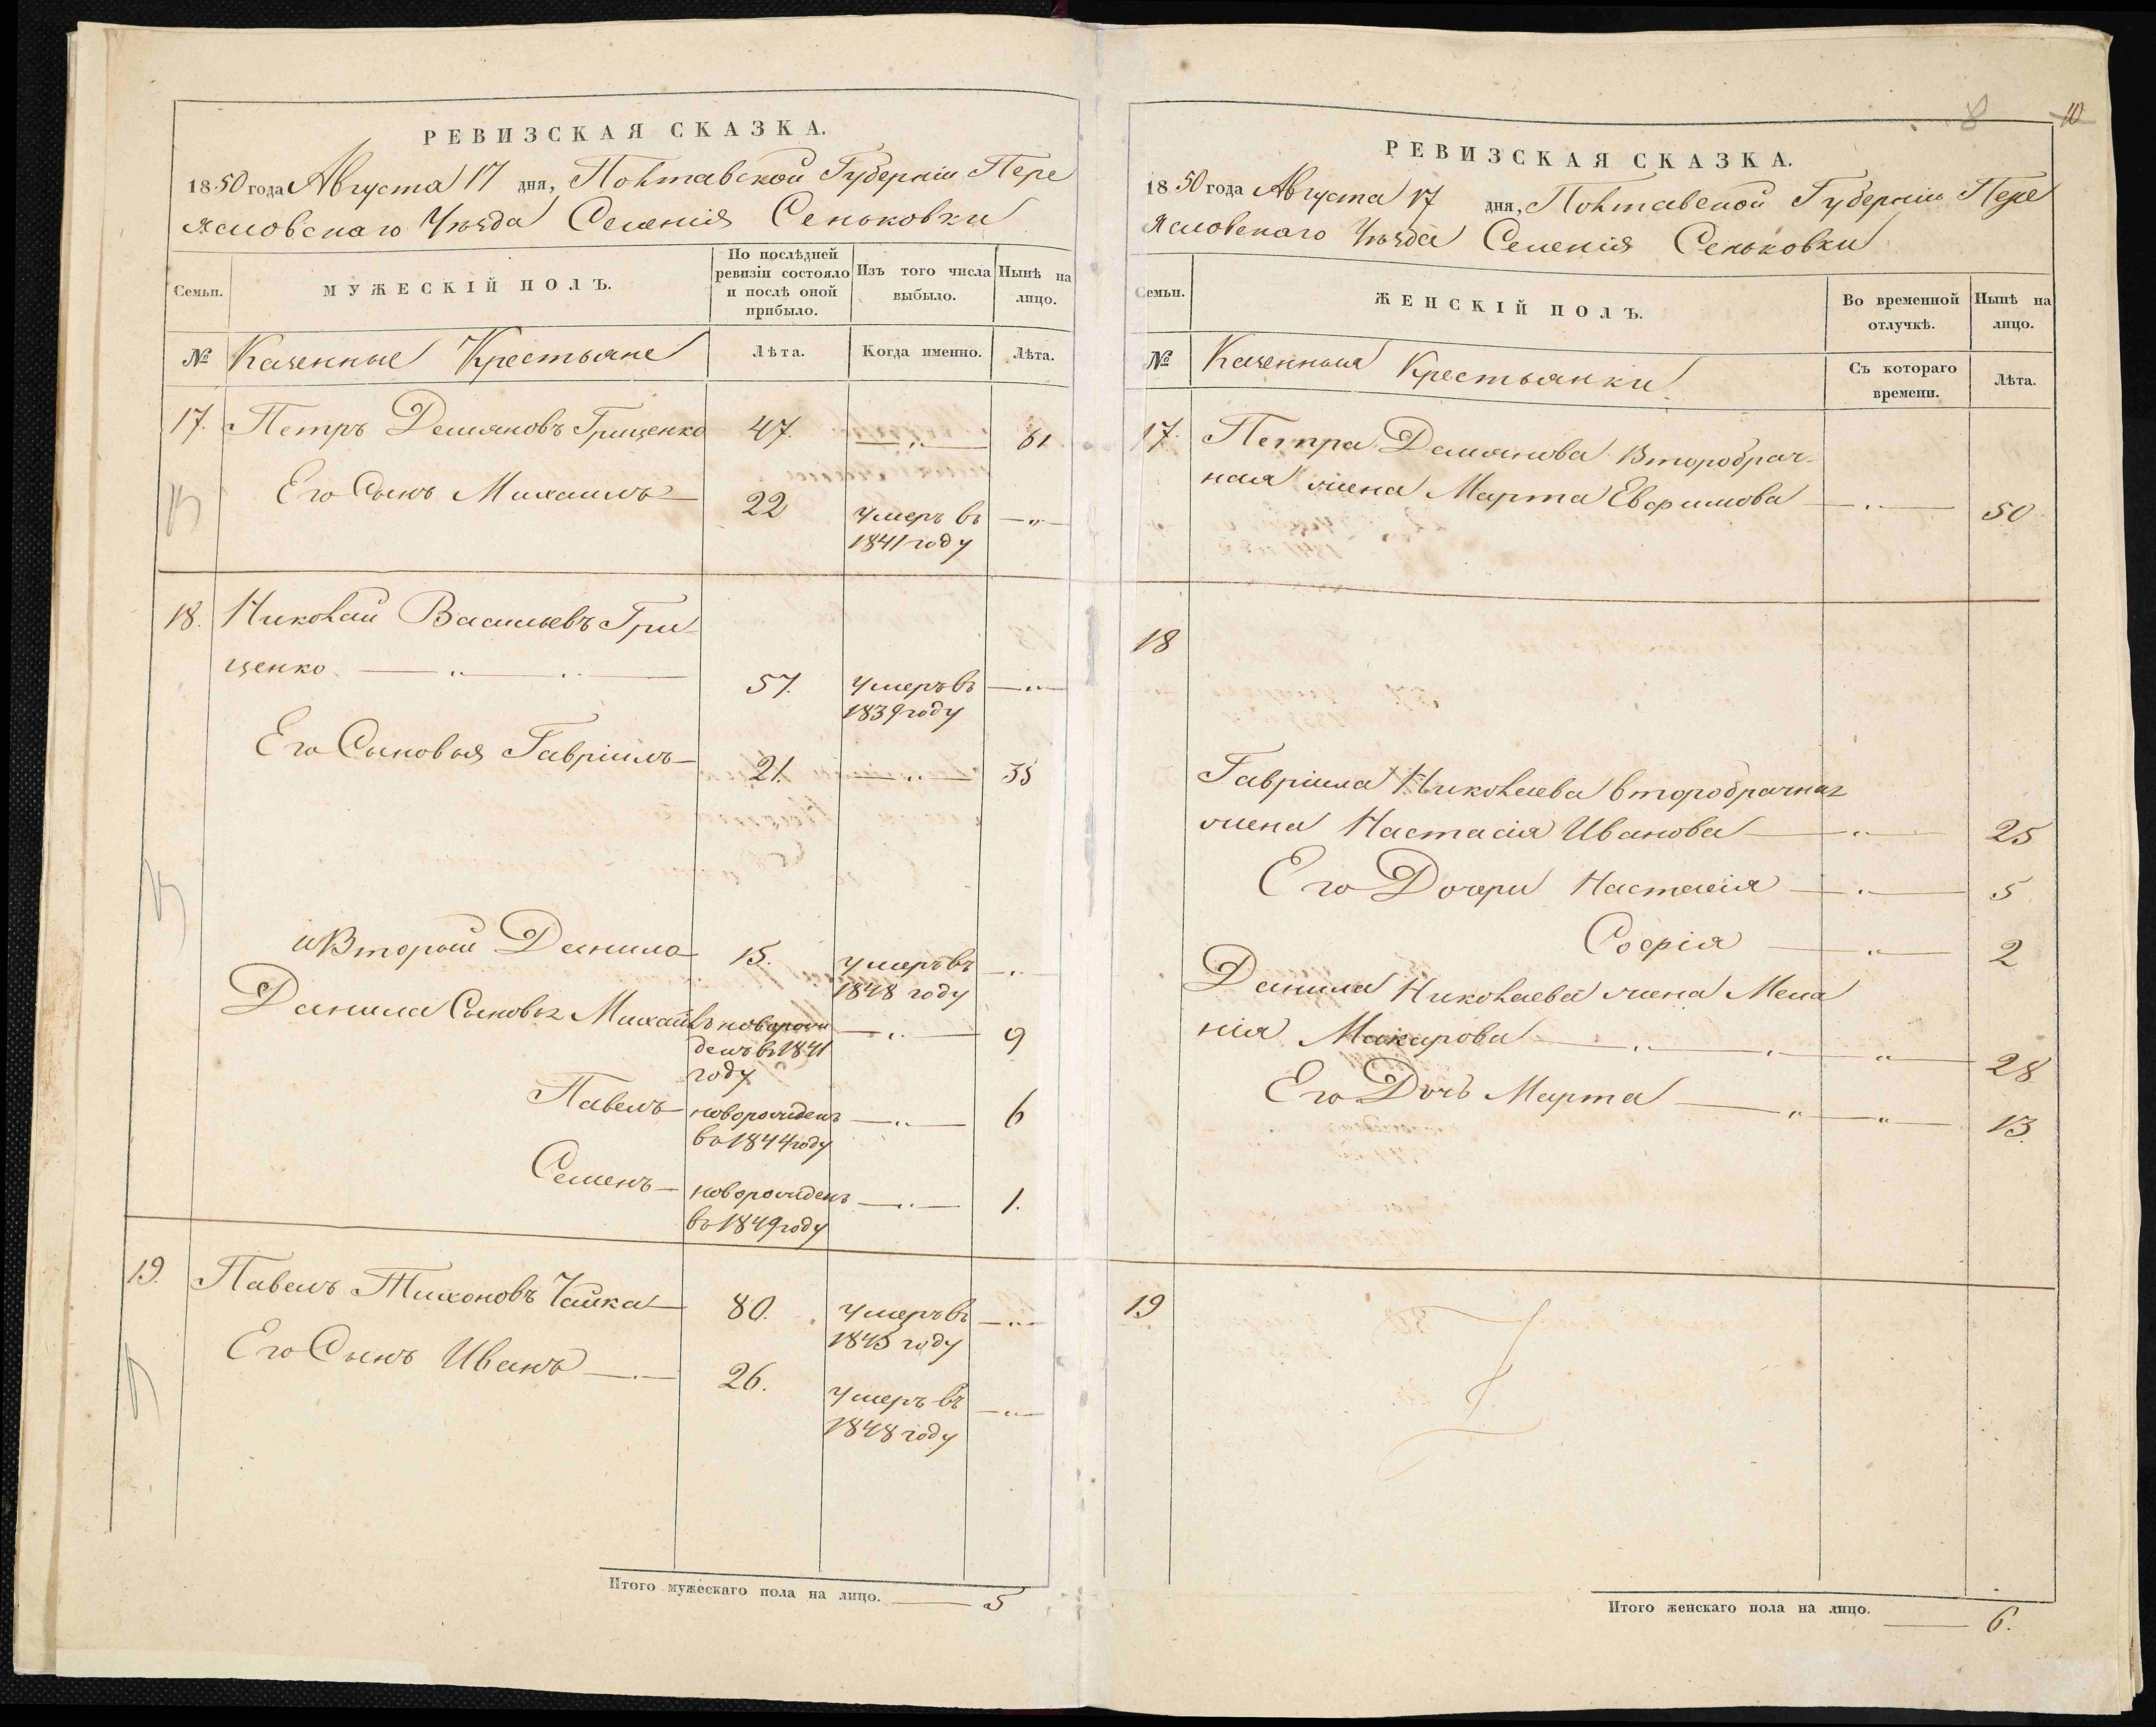 РЕВИЗСКАЯ СКАЗКА.
1850 года Августа 17 дня, Полтавской Губерніи Пере
яславскаго Уѣзда Селенія Сеньковки
Семьи.
МУЖЕСКІЙ ПОЛЪ.
По послѣдней
ревизіи состояло
и послѣ оной
прибыло.
Изъ того числа
выбыло.
Нынѣ на
лицо.
№ Казенные Крестьяне
Лѣта.
Когда именно.
Лѣта.
17. Петръ Демяновъ Грищенко 47. —„— 61
Его Сынъ Михаилъ — 22 умеръ въ —„—
1841 году
18. Николай Васильевъ Гри-
щенко — „ — „ — 57. умеръ въ —„—
1839 году
Его Сыновья Гавріилъ — 21. —„— 35
и Второй Данило — 15. умеръ въ —„—
1848 году
Данила Сыновья Михайлъ новорож —„— 9
денъ въ 1841
году
Павелъ — новорожденъ —„— 6
въ 1844 году
Семенъ — новорожденъ —„— 1.
въ 1849 году
19. Павелъ Тихоновъ Чайка — 80. умеръ въ —„—
1845 году
Его Сынъ Иванъ —„— 26. умеръ въ —„—
1848 году
Итого мужескаго пола на лицо. — 5
8 10
РЕВИЗСКАЯ СКАЗКА.
1850 года Августа 17 дня, Полтавской Губерніи Пере
яславскаго Уѣзда Селенія Сеньковки
Семьи.
ЖЕНСКІЙ ПОЛЪ.
Во временной
отлучкѣ.
Нынѣ на
лицо.
№ Казенныя Крестьянки
Съ котораго
времени.
Лѣта.
17. Петра Демянова Второбрач-
ная жена Марта Евфимова —„— 50
18
Гавріила Николаева второбрачная
жена Настасія Иванова —„— 25
Его Дочери Настасія —„— 5
Софія —„— 2
Данила Николаева жена Мела
нія Макарова — „ — „ — „ — 28
Его Дочь Марта — „ — „ — 13.
19
Итого женскаго пола на лицо. — 6.